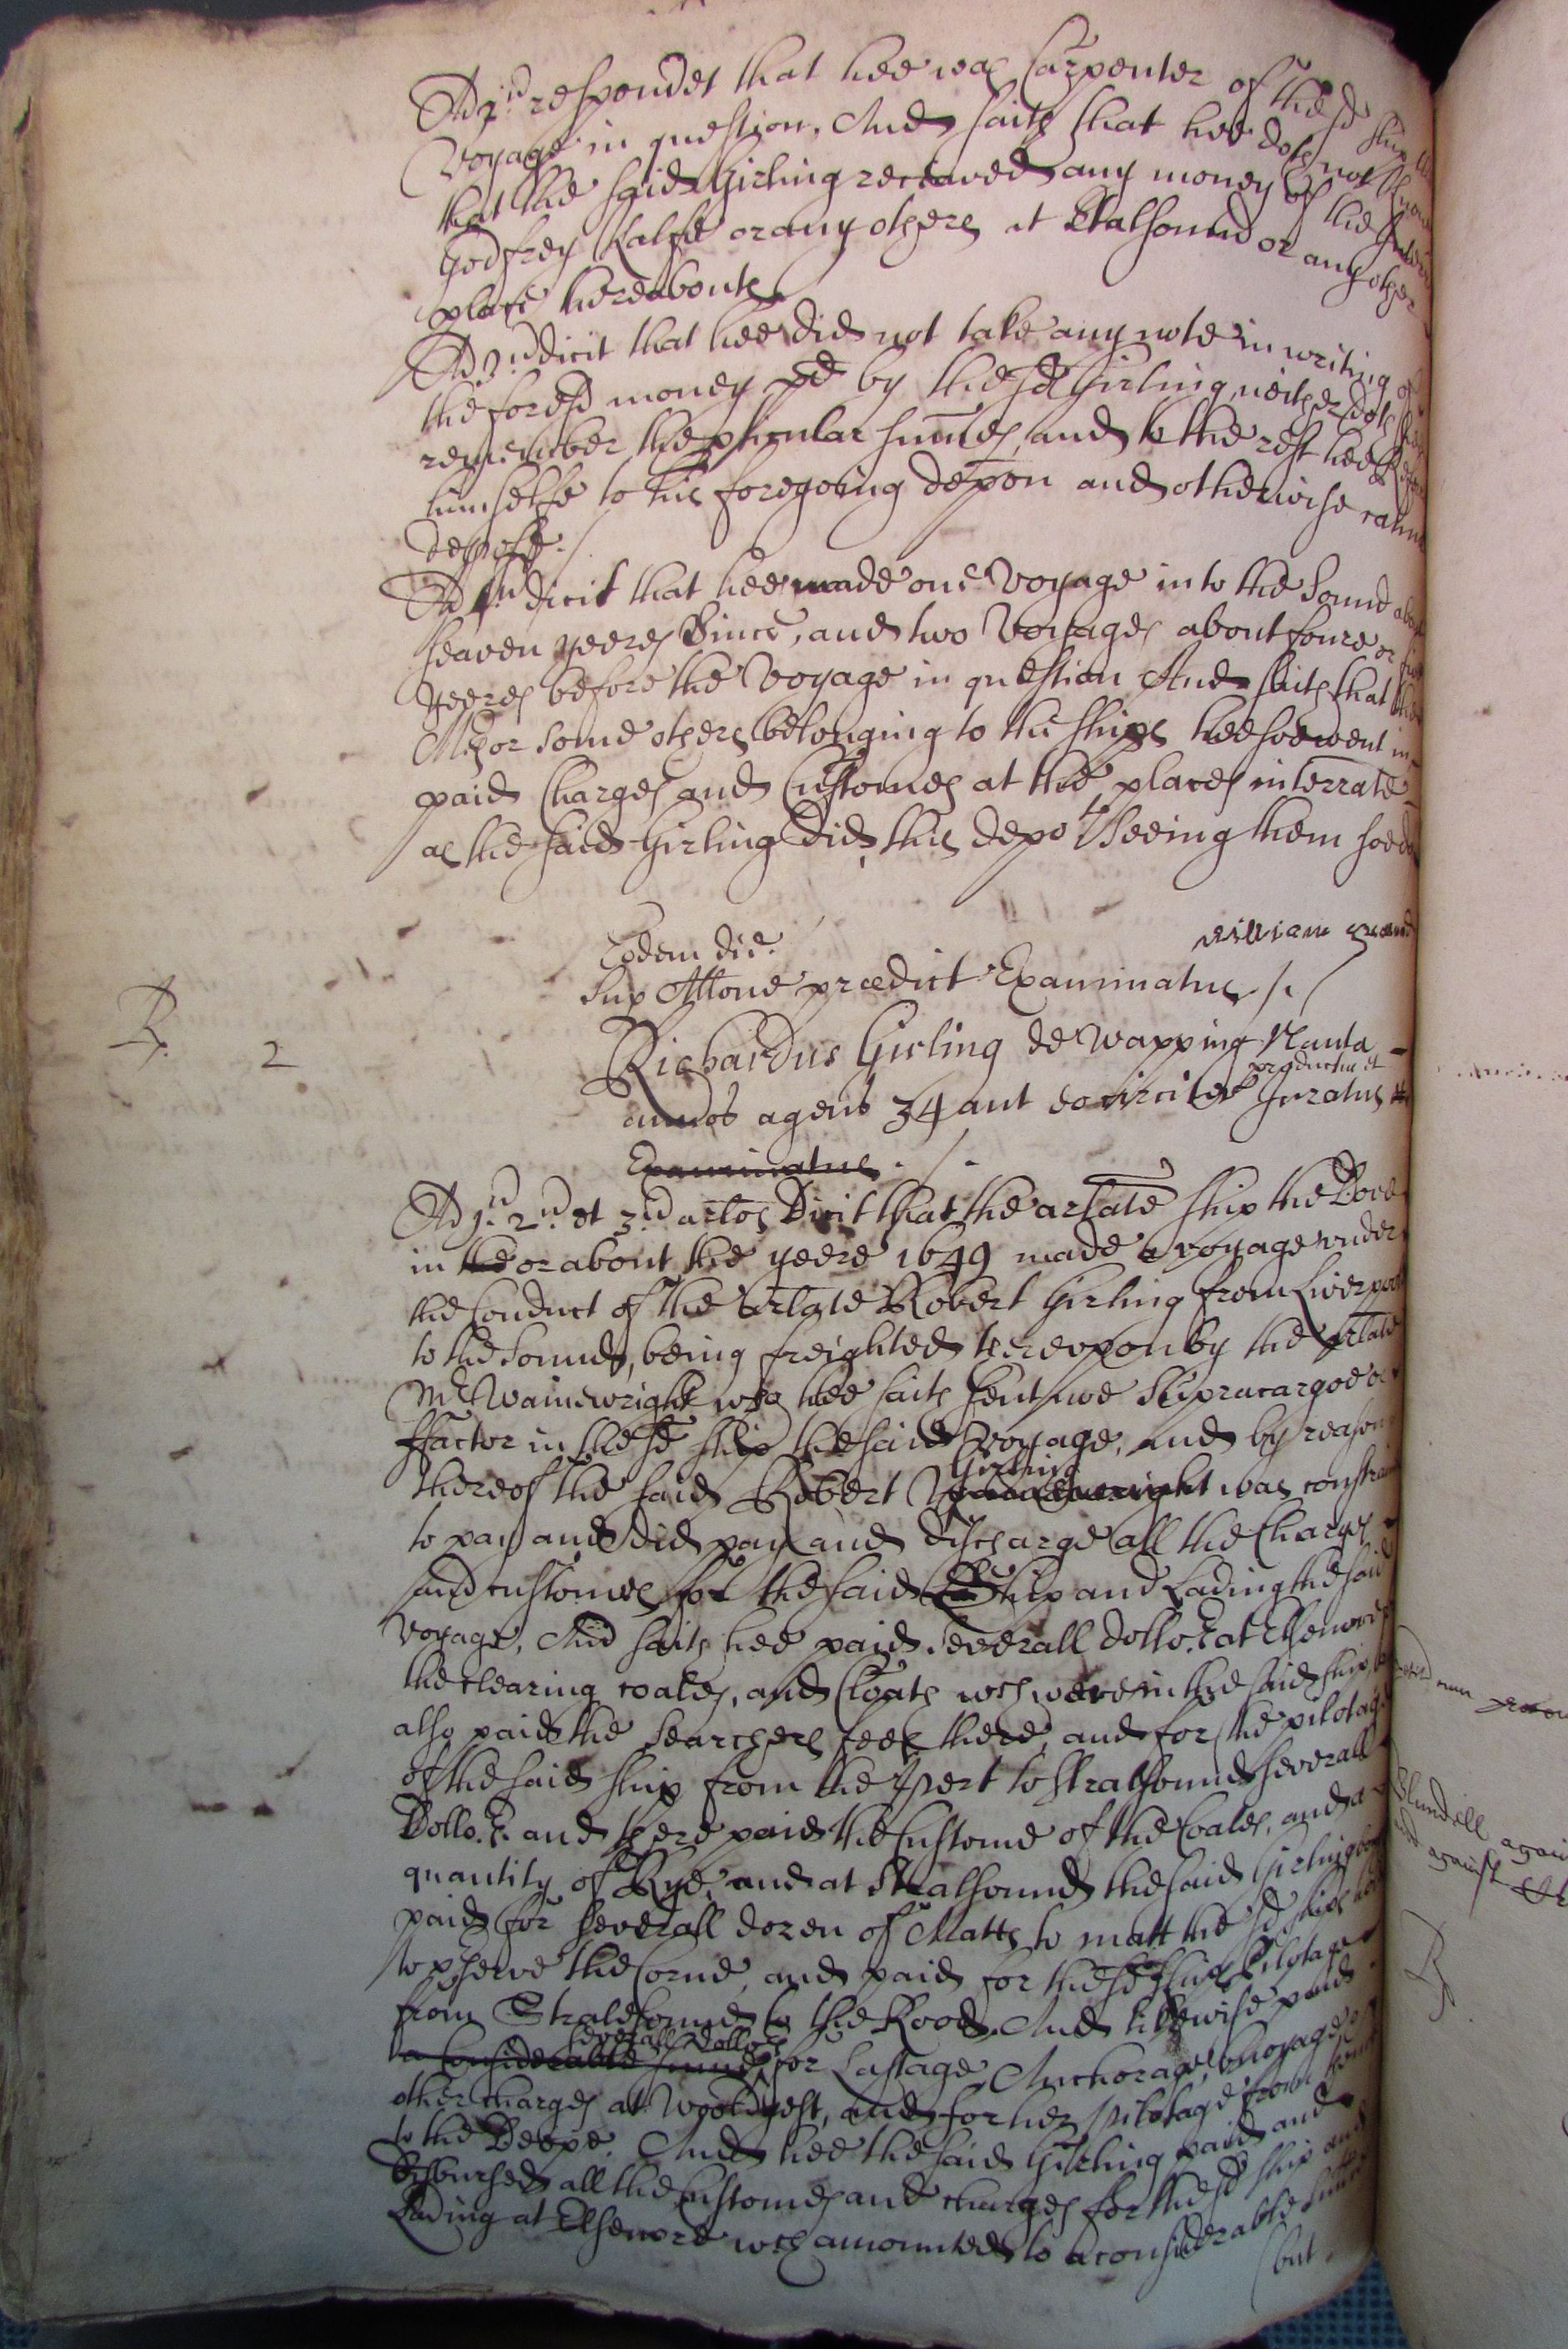 Ad 2.um respondet that hee was Carpenter of the sd ship the
Voyage in question, And saith that hee doth not know
that the said Girling received any money of the
Godfrey Ralfe or any others at Stralsound or any other
place thereabouts
Ad 3.um dicit that hee did not take any note in writing of
the foresd money pd by the sd Girling, neither doth hee
remember the pticular summes, and to the rest hee Referrs
himselfe to his foregoing depon and otherwise cannot
depose./
Ad 4um dicit that hee made one Voyage in to the Sound about
seaven yeeres Since, and two Voyages about foure or five
yeeres before the Voyage in question And saith that the
Mr or some others belonging to the ships hee soe went in
paid Charges and Customes at the places interrate
as the said Girling did, this depot seeing them soe do
william
Eodem die.
Sup Allone prædict Examinatus /. /
R. 2
Richardus Girling de Wapping Nauta
annos agens 34 aut eo circiter productus et Juratus
Examinatus . / .
Ad 1.um 2.um et 3.um artos Dicit that the arlate ship the Dove
in the or about the yeere 1649 made a voyage under
the Conduct of the arlate Robert Girling from Liverpoole
to the Sound, being freighted thereupon by the arlate
Mr Wainewright who hee saith sent noe Supracargoe or
ffactor in the sd ship the said Voyage, and by reason
thereof the said Robert Girling was constrained
to pay and did pay and discharge all the Charges
and customes for the said Ship and Lading the said
Voyage, And saith hee paid severall dollo.rs at Elsenore
the clearing coales, and Cloath wch were in the said ship,
also paid the Searchers fees there, and for the pilotage
of the said ship from the Spert to Stralsound severall
Dollo.rs and there paid the Custome of the Coales, and a
quantity of Rye, and at Stralsound the said Girling
paid for severall dozen of Matts to matt the sd ships
to pserve the Corne, and paid for the sd ships Pilotage
from Stralesound to the Roode, And likewise paid
a Considerable summe severall dollors for Lastage, Anchorage, buoyage,
other charges at, and for her pilotage from
to the Deepe. And hee the said Girling paid and
disbursed all the Customes and charges for the sd ship and
Lading at Elsenore wch amounted to a considerable summe
(but